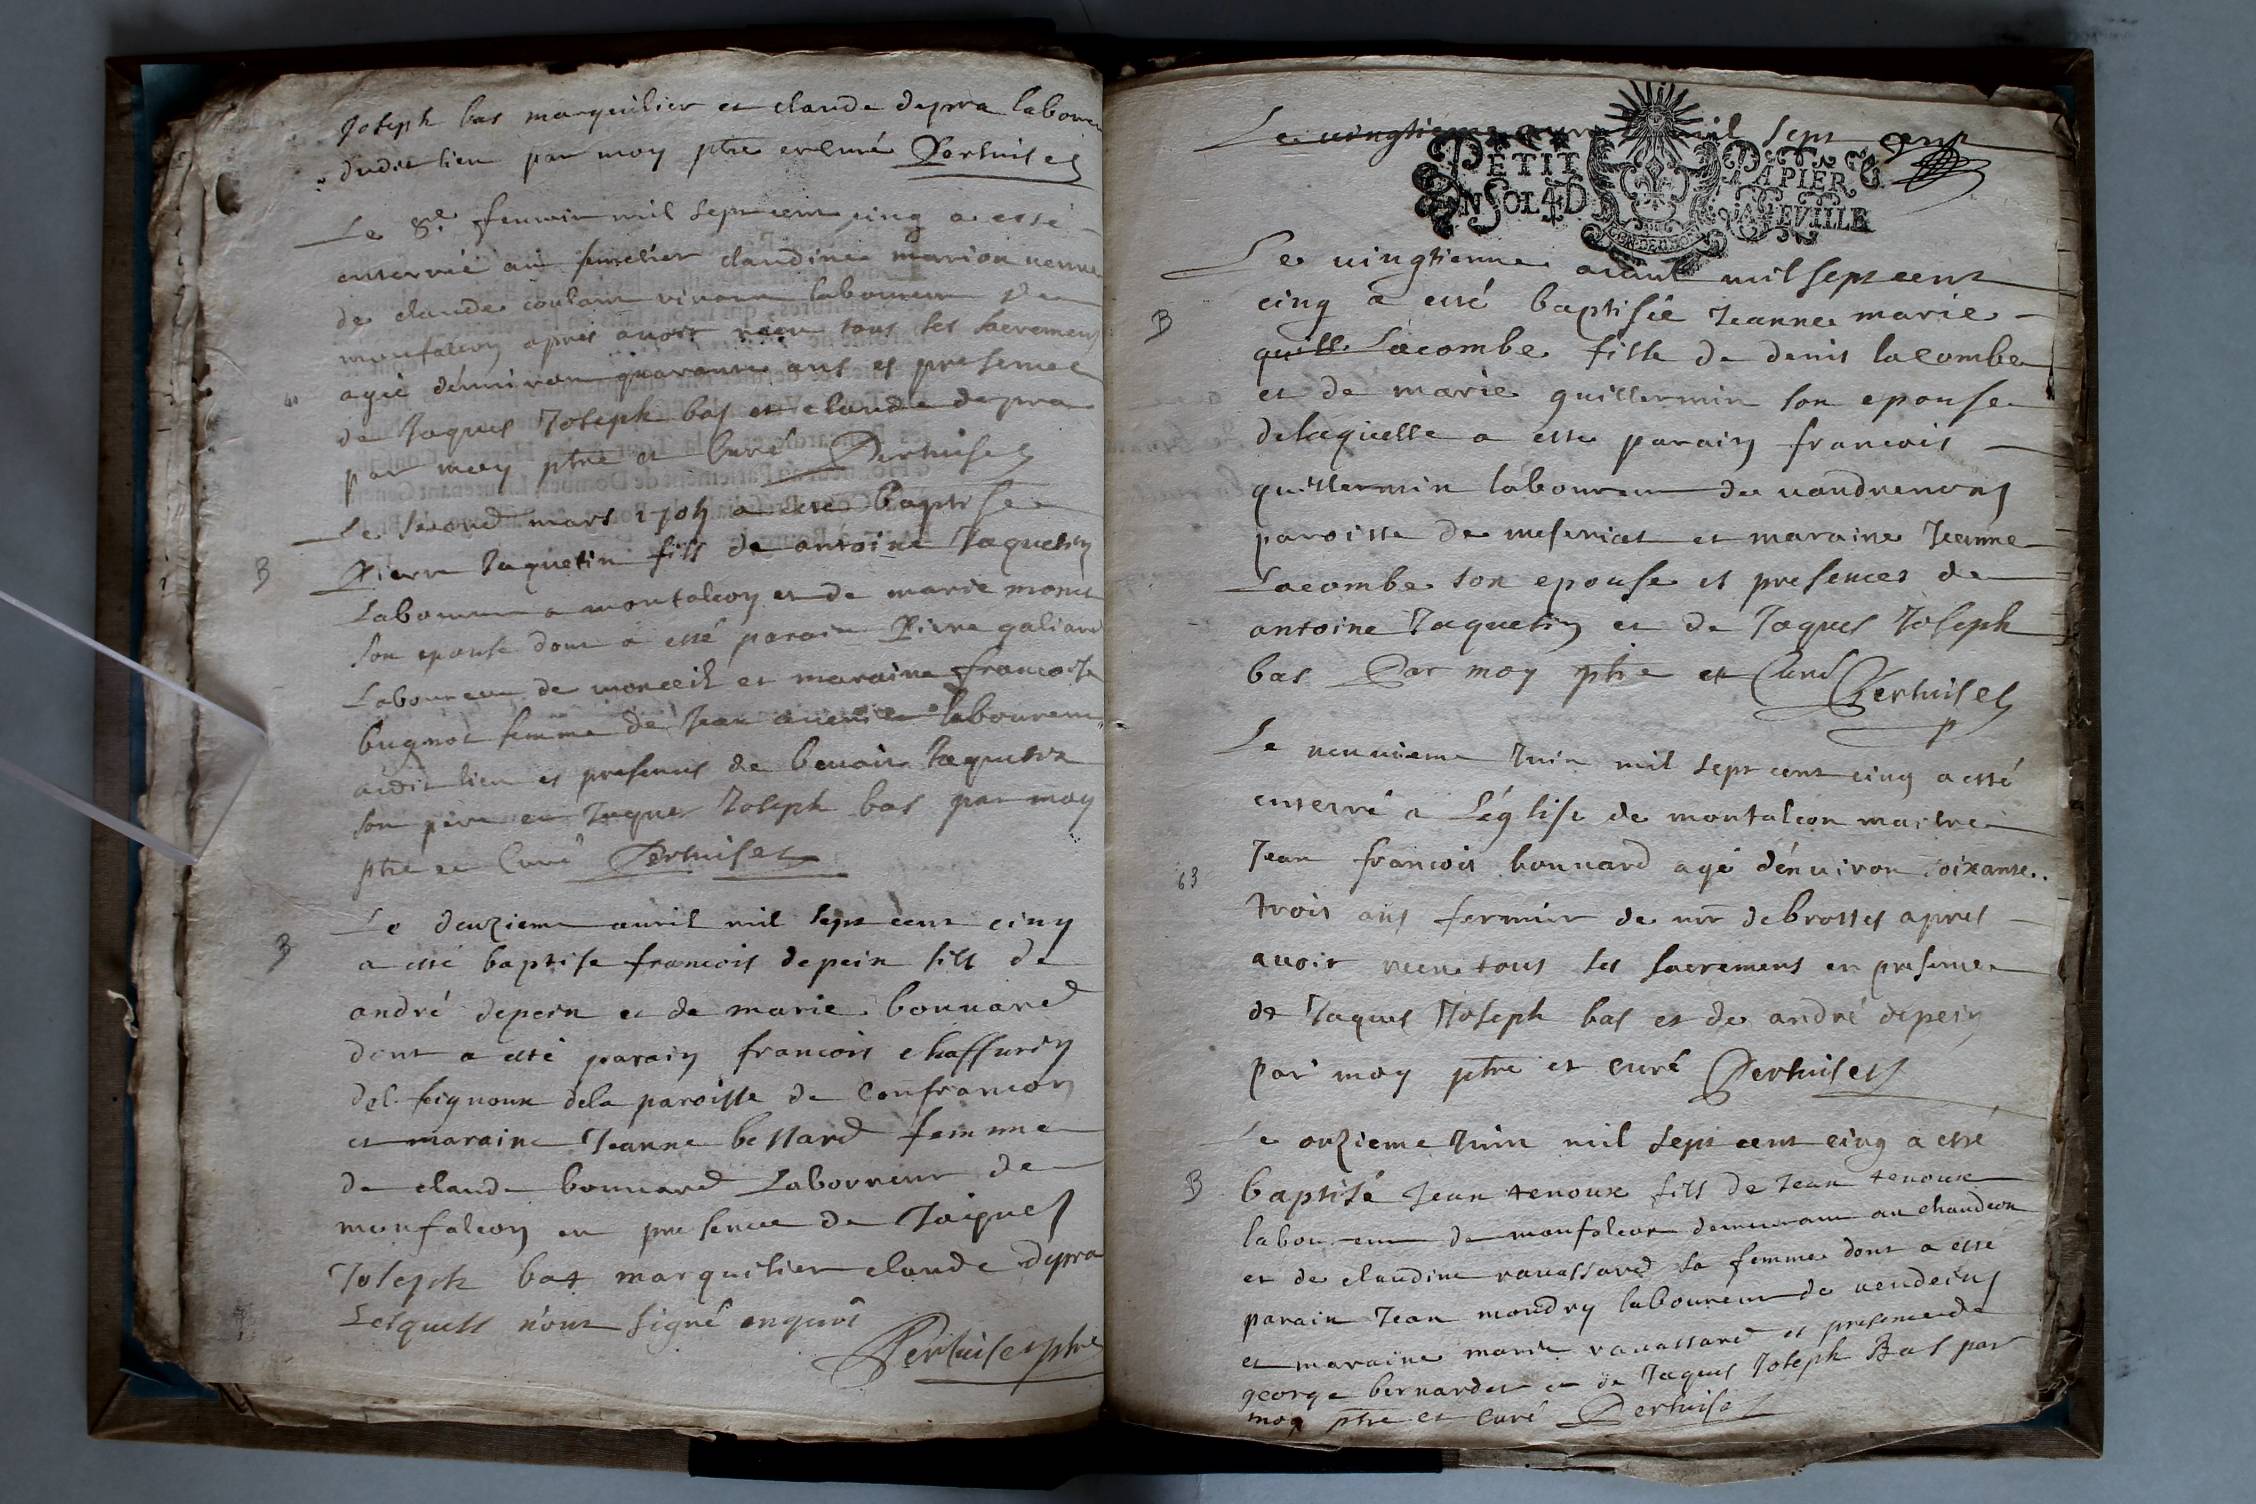 Joseph bas marguilier et claude depra laboure
dudit lieu par moy ptre et curé Pertuiset
Le 8e feuvrier mil sept cent cinq a esté
enterrée au cimetier claudine marion
de claude vivant laboureur de
monfalcon apres avoir receu tous les sacremens
agée d'environ quarante ans et presence
de Jaques Joseph bas et claude depra
par moy ptre et curé Pertuiset
Le second mars 1705 a esté baptisé
B
Pierre Jaquetin fils de antoine Jaquetin
Laboureur a montalcon et de marie
son epouse dont a esté parain Pierre galiand
Laboureur de et maraine francoise
bugnot femme de Jean laboureur
audit lieu et presences de benoit Jaquetin
son pere et Jaques Joseph bas par moy
ptre et Curé Pertuiset
Le deuzieme avril mil sept cent cinq
B
a esté baptise francois depein fils de
andré depein et de marie bouvard
dont a esté parain francois chaffurin
des feignoux dela paroisse de Confrancon
et maraine Jeanne bessard femme
de claude bouvard Laboureur de
monfalcon en presence de Jaques
Joseph bas marguilier claude depra
Lesquels n'ont signé enquis
Pertuiset ptre
Le vingtieme avril mil sept cent
PETIT PAPIER
UN SOL 4 D LA FEVILLE
GEN DE DIION
Le vingtienne avril mil sept cent
cinq a esté baptisée Jeanne marie
B
Lacombe fille de denis lacombe
et de marie guillermin son epouse
delaquelle a este parain francois
guillermin laboureur de vandenans
paroisse de meseriat et maraine Jeanne
Lacombe son epouse et presences de
antoine Jaquetin et de Jaques Joseph
bas Par moy ptre et Curé Pertuiset
Le neuvieme Juin mil sept cent cinq a esté
enterré a L'église de montalcon maitre
63
Jean francois bouvard agé d'environ soixante
trois ans fermier de mr debrosses apres
avoir receu tous les sacremens en presence
de Jaques Joseph bas et de andré depein
Par moy ptre et curé Pertuiset
Le onzieme Juin mil sept cent cinq a esté
B
baptisé Jean tenoux fils de Jean tenoux
laboureur de monfalcon demeurant au chaudeon
et de claudine ravassard sa femme dont a esté
parain Jean mondry laboureur de vendeins
et maraine marie ravassard et presence de
george bernardet et de Jaques Joseph Bas par
moy ptre et curé Pertuiset